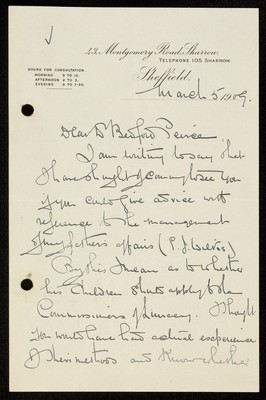 43, Montgomery Road, Sharrow.
TELEPHONE 105 SHARROW.
HOURS FOR CONSULTATION.
MORNING 9 TO 10.
AFTERNOON 2 TO 3.
EVENING 6 TO 7-30.
Sheffield.
March 5 1909.
Dear Dr Bedford Pierce
I am writing to say that
I have thought of coming to see you
if you could give advice with
reference to the management
of my father's affairs (T. J. Wilson)
By this I mean as to whether
his children should apply to the
Commissioners of Lunacy. I thought
you would have had actual experience
of their methods and know whether